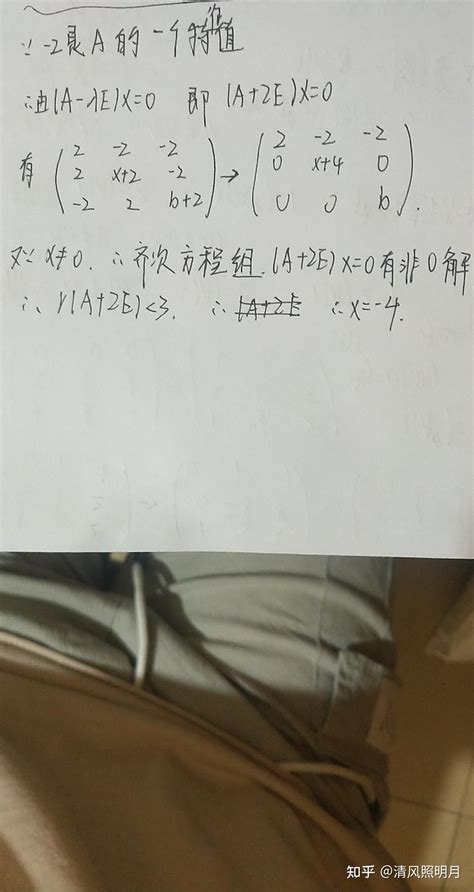 ∵ -2是A的一个特征值
∴由(A-λE)X=0 即 (A+2E)X=0
有 ( 2 -2 -2 → ( 2 -2 -2
2 x+2 -2 0 x+4 0
-2 2 b+2 ) 0 0 b ).
又∵ x≠0. ∴齐次方程组.(A+2E)x=0有非0解
∴ r(A+2E)<3. ∴ |A+2E ∴x=-4.
知乎 @清风照明月